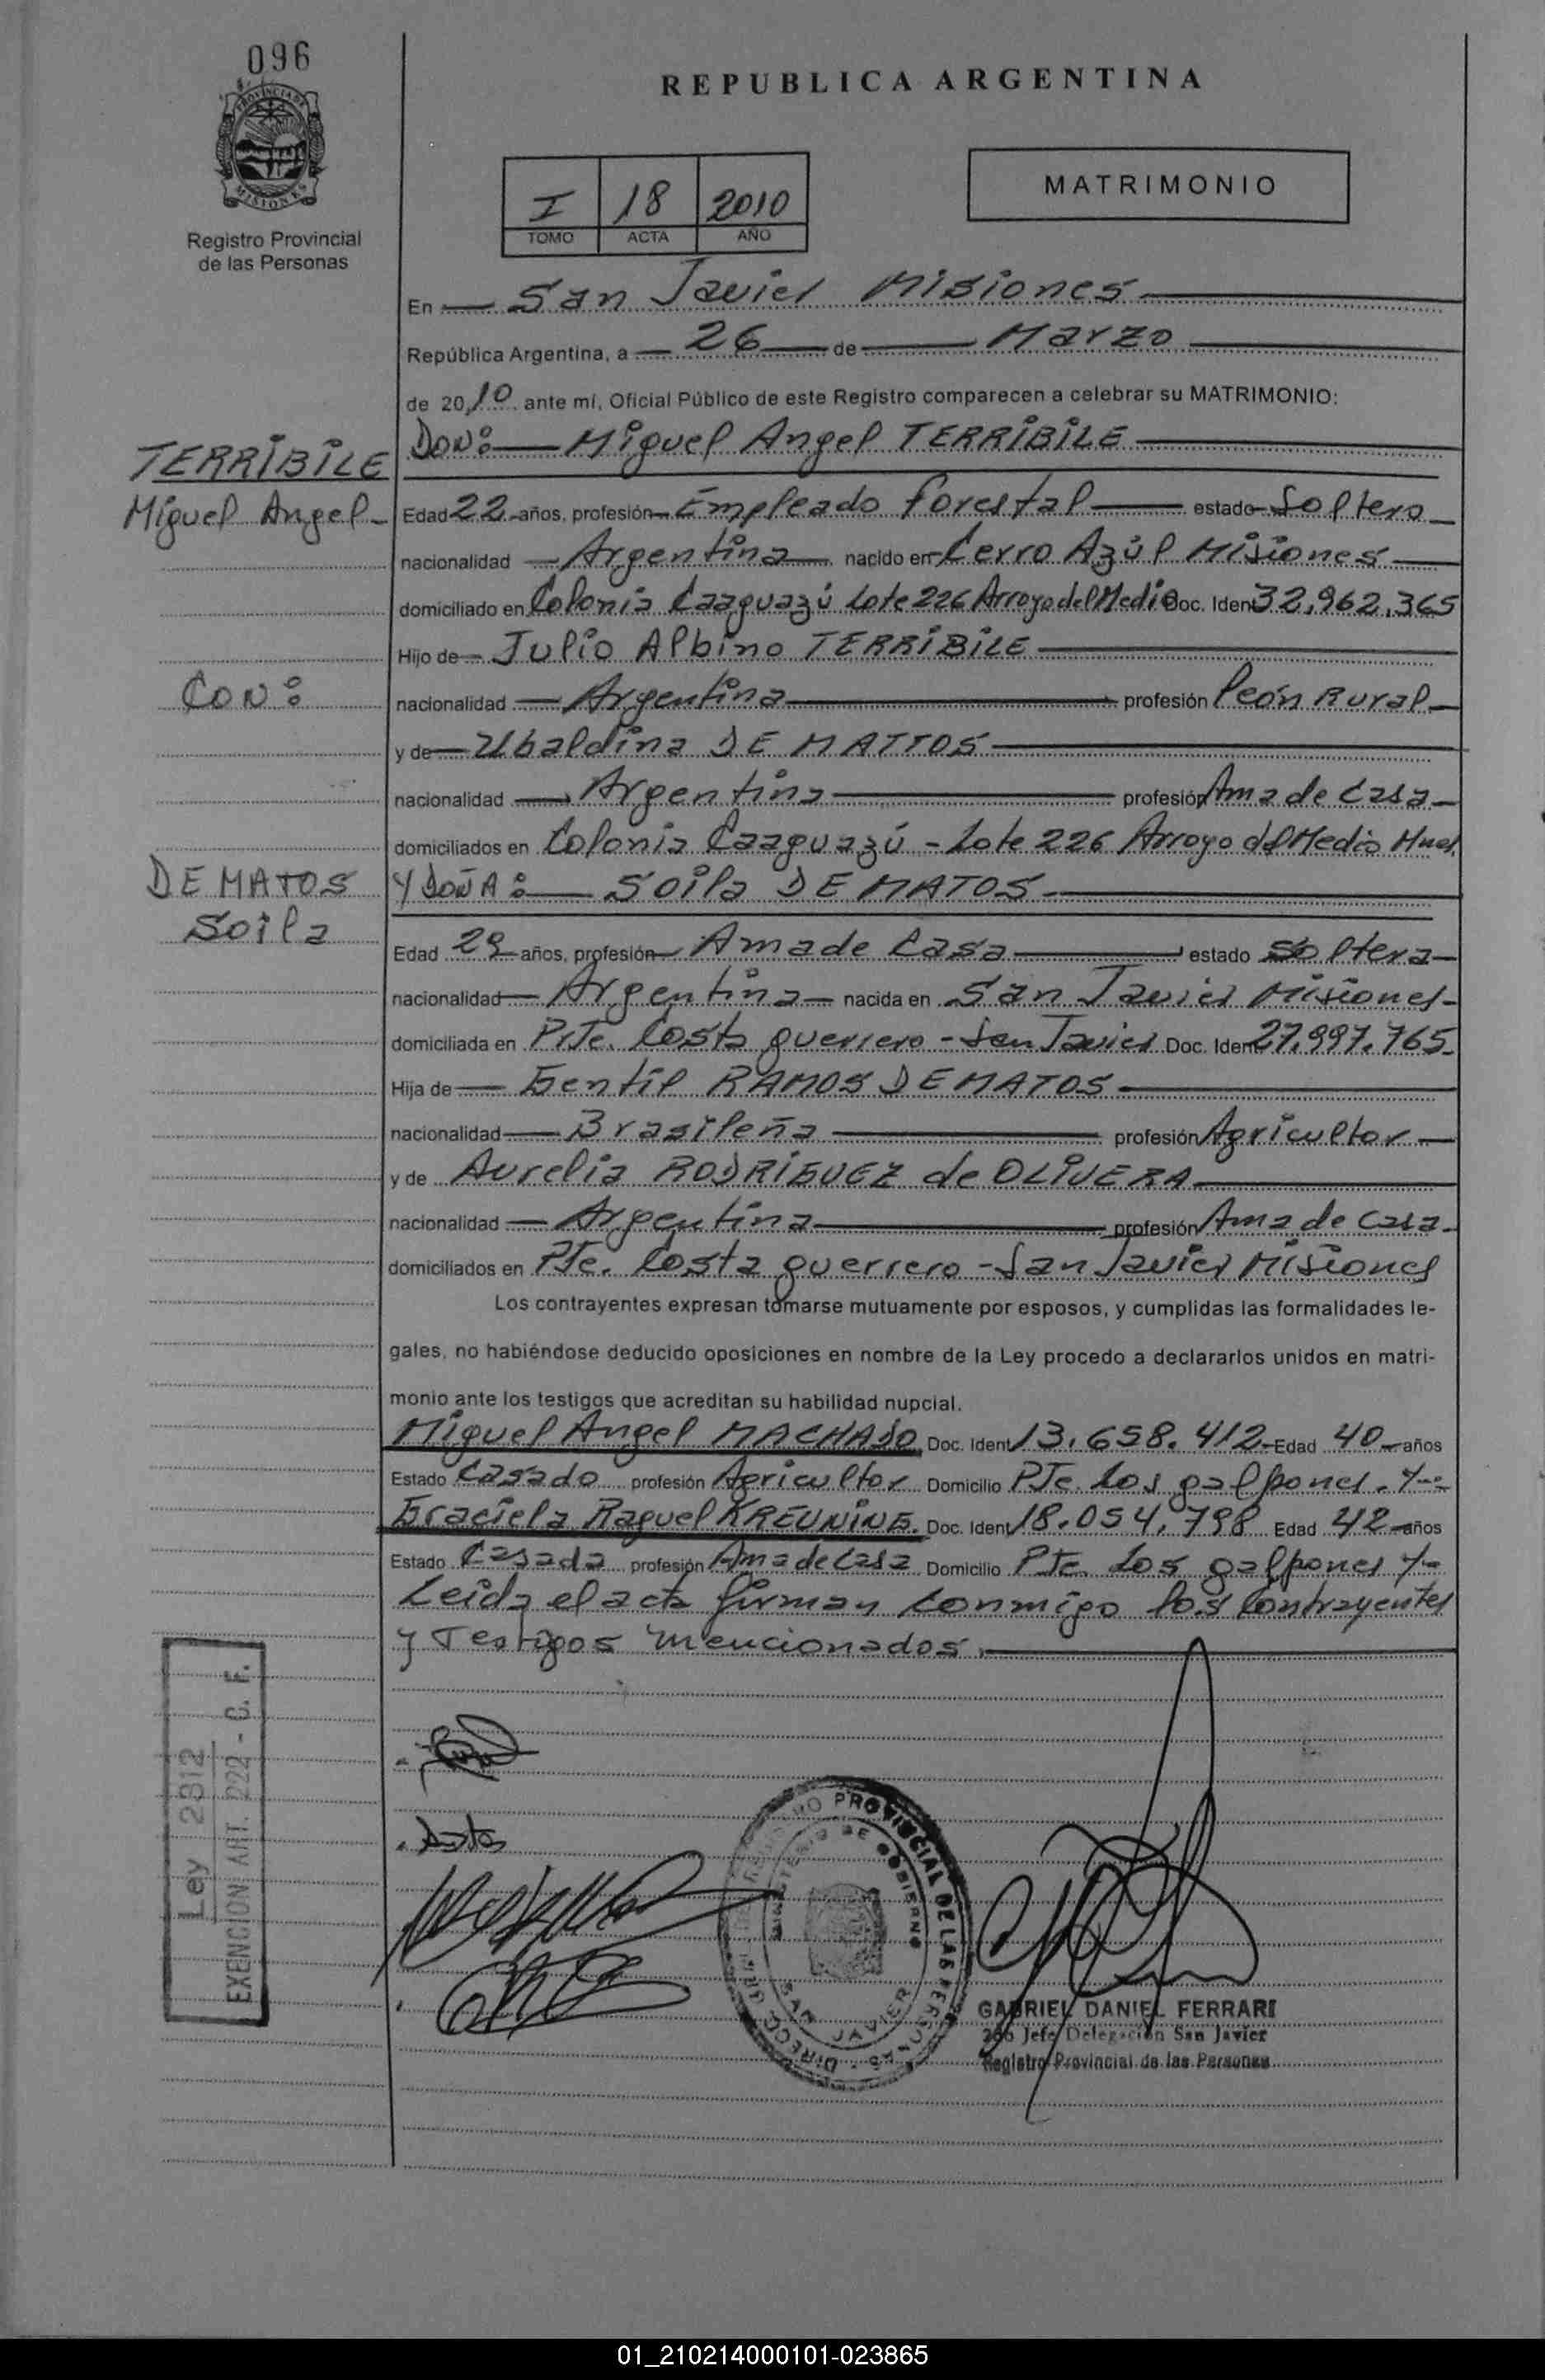 096
PROVINCIA DE
MISIONES
Registro Provincial
de las Personas
REPUBLICA ARGENTINA
I 18 2010
TOMO ACTA AÑO
MATRIMONIO
En San Javier Misiones
República Argentina, a 26 de Marzo
de 20 10 ante mí, Oficial Público de este Registro comparecen a celebrar su MATRIMONIO:
TERRIBILE
Miguel Angel
DON: Miguel Angel TERRIBILE
Edad 22 años, profesión Empleado forestal estado Soltero
nacionalidad Argentina nacido en Cerro Azúl Misiones
domiciliado en Colonia Caaguazú Lote 226 Arroyo del Medio Doc. Iden 32.962.365
Hijo de Julio Albino TERRIBILE
CON:
nacionalidad Argentina profesión Peón Rural
y de Ubaldina DE MATTOS
nacionalidad Argentina profesión Ama de Casa
domiciliados en Colonia Caaguazú - Lote 226 Arroyo del Medio Mnes.
DE MATOS
Soila
Y DOÑA: Soila DE MATOS
Edad 29 años, profesión Ama de Casa estado soltera
nacionalidad Argentina nacida en San Javier Misiones
domiciliada en PJe. Costa guerrero - San Javier Doc. Ident 27.997.765
Hija de Gentil RAMOS DE MATOS
nacionalidad Brasileña profesión Agricultor
y de Aurelia RODRIGUEZ de OLIVERA
nacionalidad Argentina profesión Ama de Casa
domiciliados en PJe. Costa guerrero - San Javier Misiones
Los contrayentes expresan tomarse mutuamente por esposos, y cumplidas las formalidades le-
gales, no habiéndose deducido oposiciones en nombre de la Ley procedo a declararlos unidos en matri-
monio ante los testigos que acreditan su habilidad nupcial.
Miguel Angel MACHADO Doc. Ident 13.658.412 Edad 40 años
Estado Casado profesión Agricultor Domicilio PJe. Los galpones. Y
Graciela Raquel KREUNING. Doc. Ident 18.054.798 Edad 42 años
Estado Casada profesión Ama de Casa Domicilio PJe. Los galpones Y
Leida el acta firman conmigo los Contrayentes
y Testigos mencionados.
Ley 2812
EXENCION ART. 222 - C. F.
SAN JAVIER
GABRIEL DANIEL FERRARI
Jefe Delegación San Javier
Registro Provincial de las Personas
01_210214000101-023865